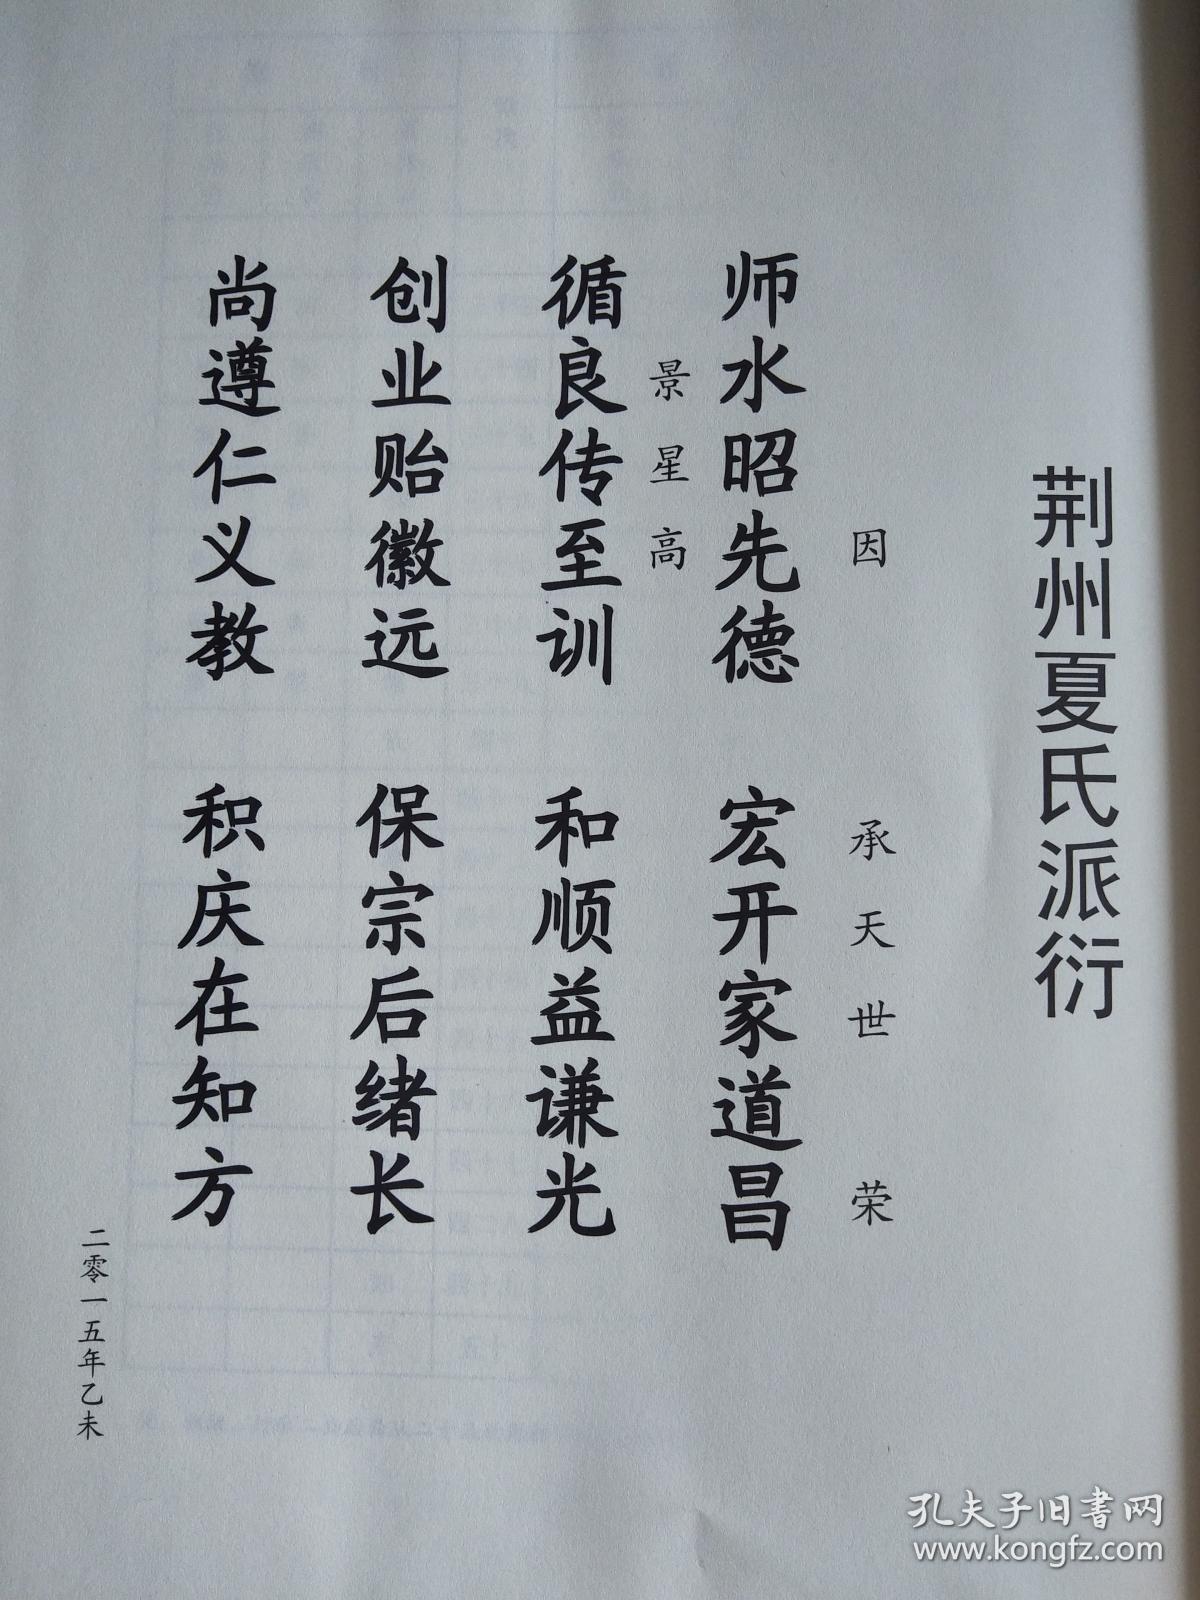 荆州夏氏派衍
因 承天世 荣
师水昭先德 宏开家道昌
景星高
循良传至训 和顺益谦光
创业贻徽远 保宗后绪长
尚遵仁义教 积庆在知方
二零一五年乙未
孔夫子旧书网
www.kongfz.com